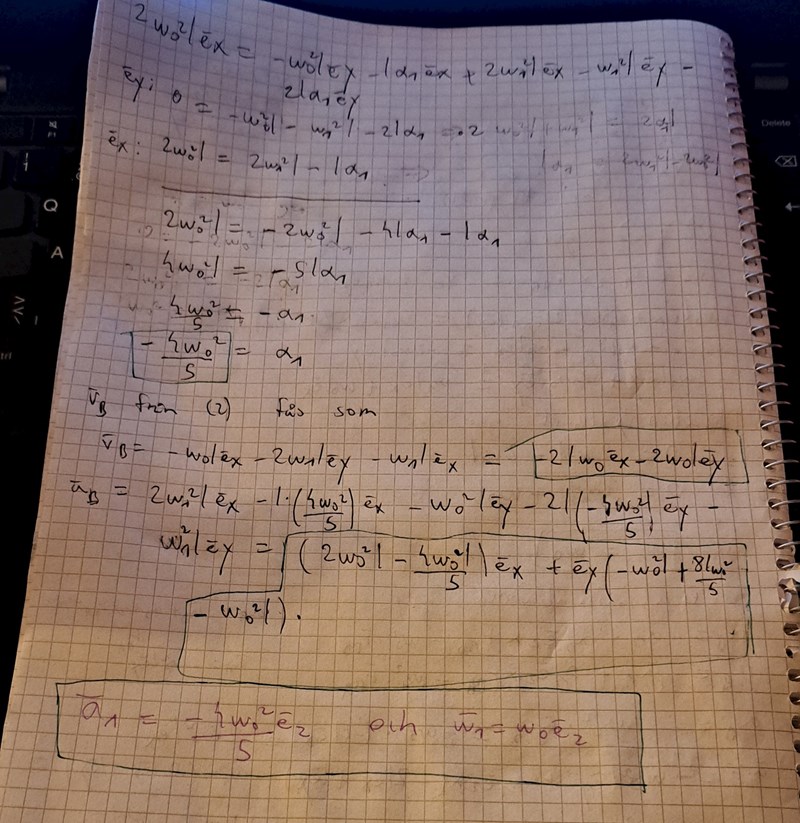 2w₀²l ēx = -w₀²l ēy - lα₁ ēx + 2w₁²l ēx - w₁²l ēy -
2lα₁ ēy
ēy: 0 = -w₀²l - w₁²l - 2lα₁
ēx: 2w₀²l = 2w₁²l - lα₁
2w₀²l = -2w₀²l - 4lα₁ - lα₁
4w₀²l = -5lα₁
4w₀²/5 = -α₁
-4w₀²/5 = α₁
v̄B från (2) fås som
v̄B = -w₀l ēx - 2w₁l ēy - w₁l ēx = -2lw₀ ēx - 2w₀l ēy
āB = 2w₁²l ēx - l·(4w₀²/5) ēx - w₀²l ēy - 2l(-4w₀²/5) ēy -
w₁²l ēy = (2w₀²l - 4w₀²l/5) ēx + ēy(-w₀²l + 8lw₀²/5
- w₀²l).
ᾱ₁ = -4w₀²/5 ēz och w̄₁ = w₀ēz
Delete
Q
A